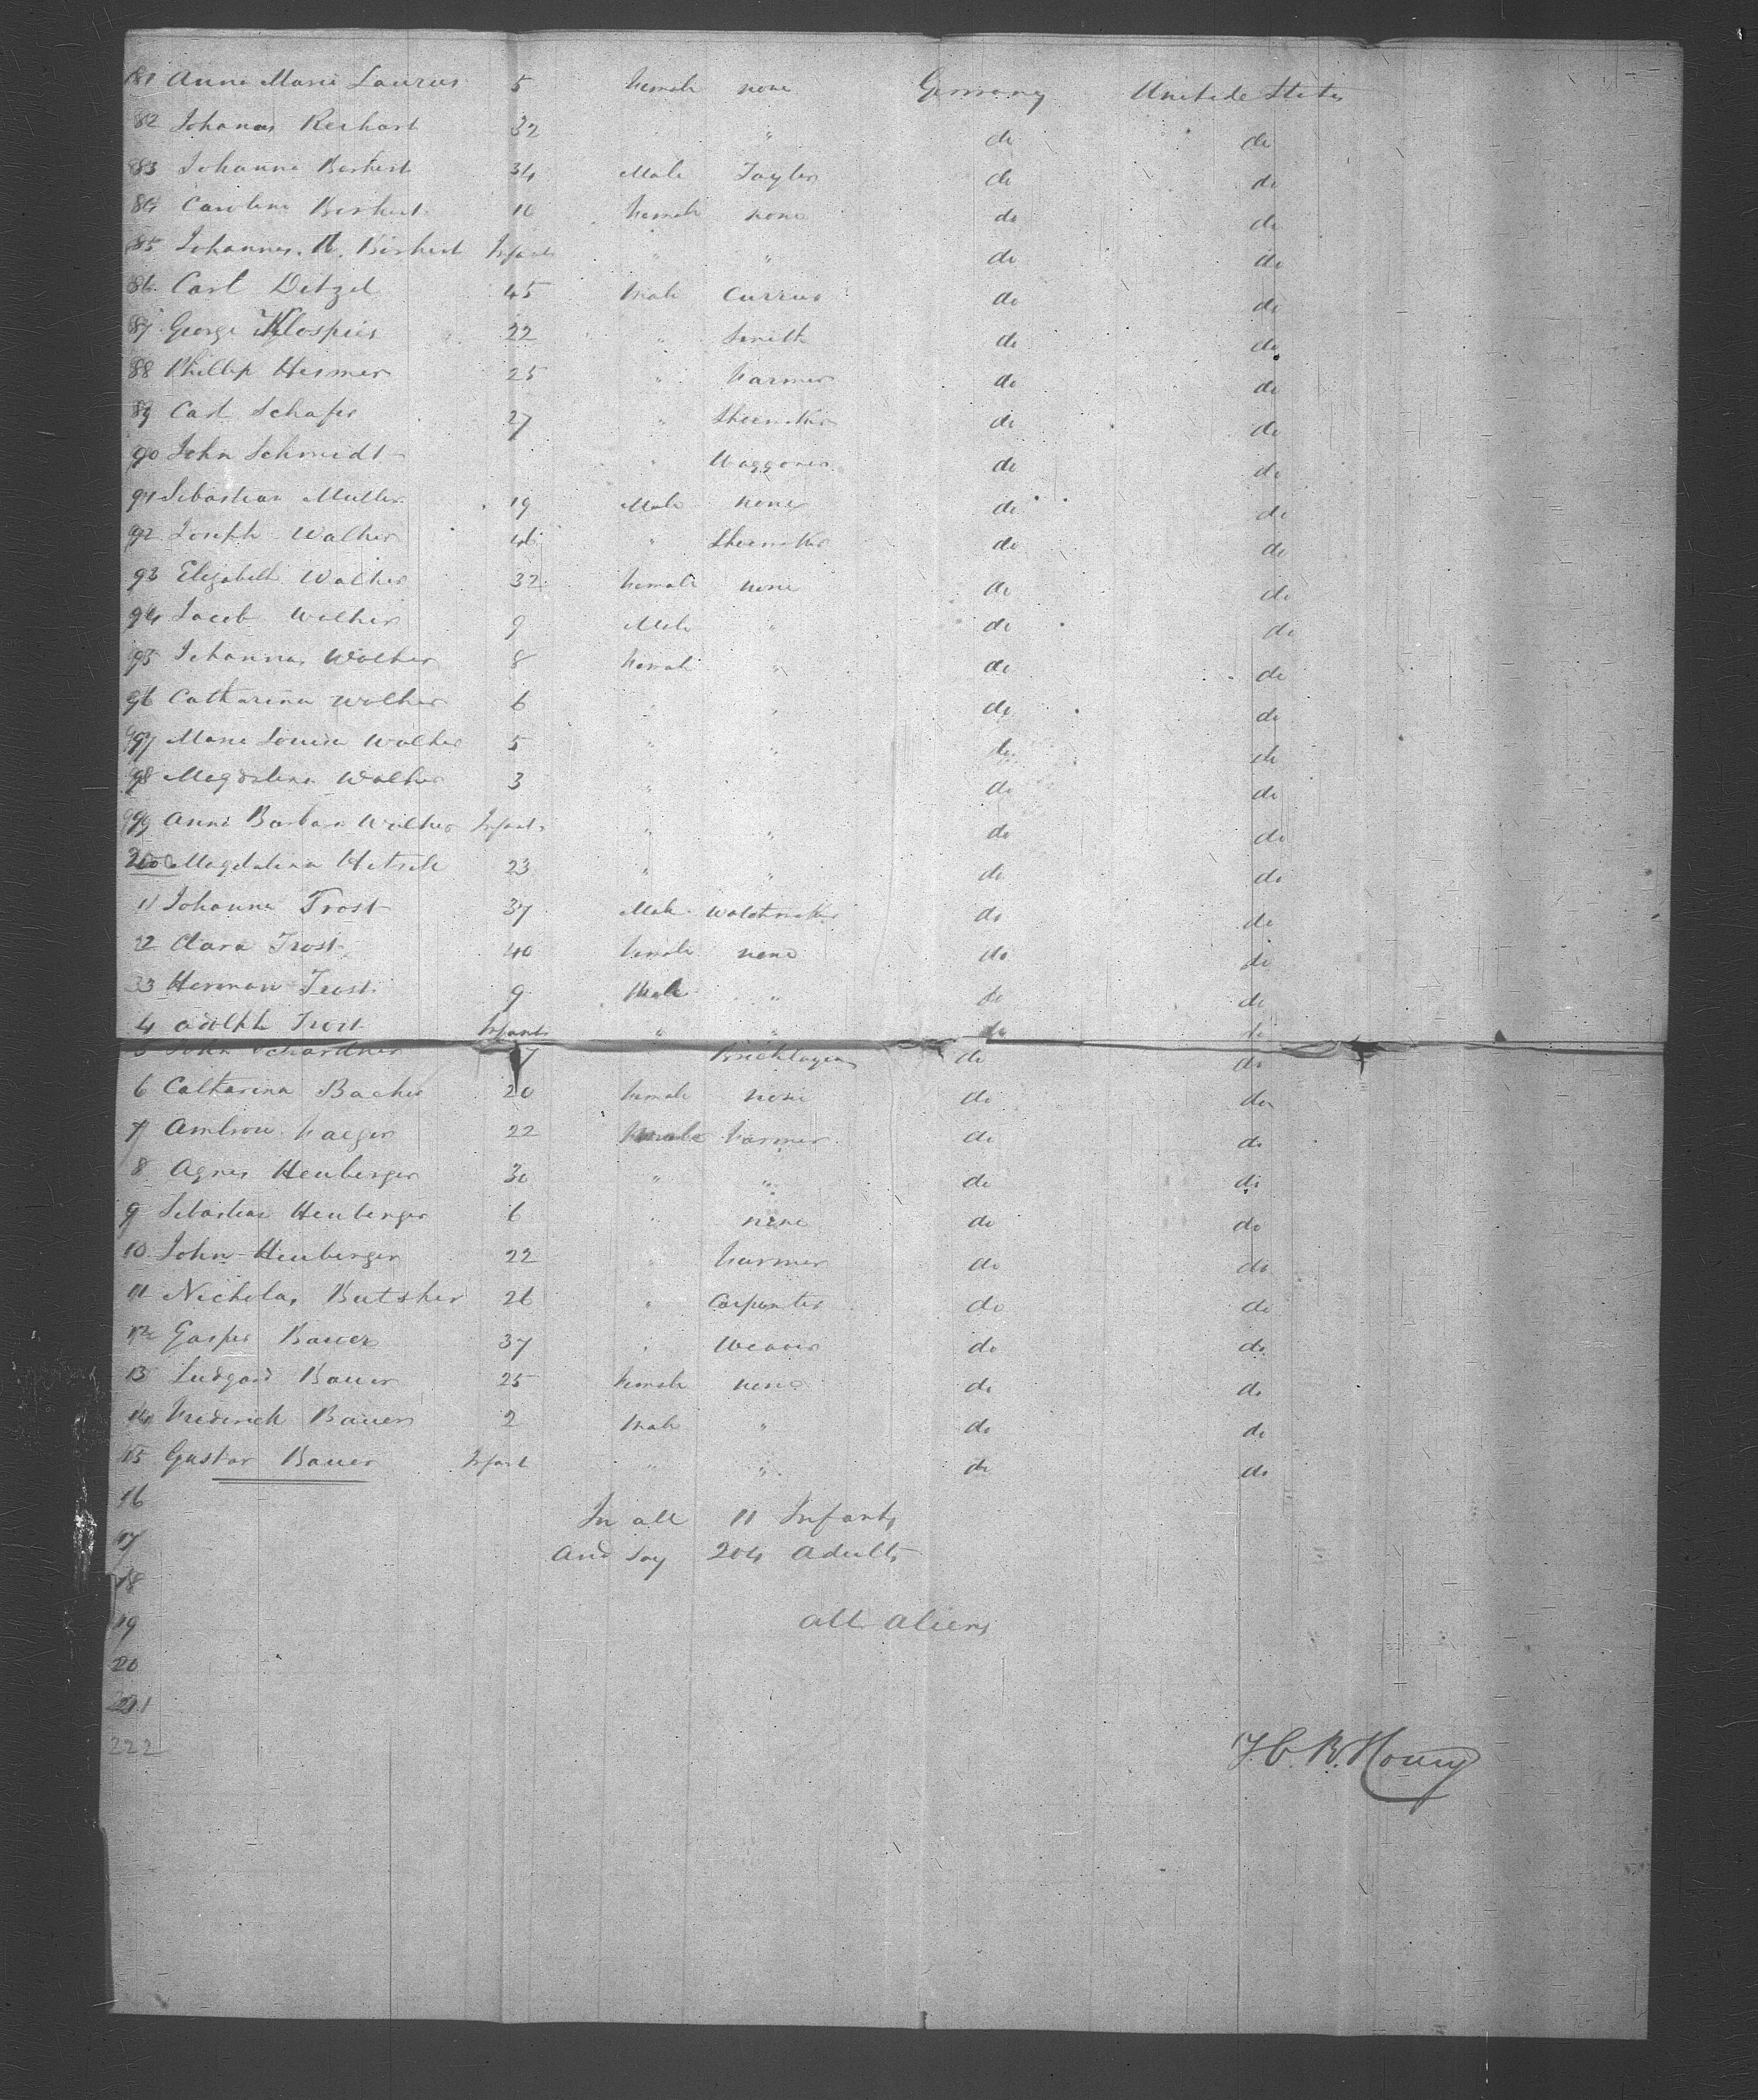 181 Anna Maria Laurus 5 Female none Germany Unitede States
82 Johanas Reihart 32 " do do
83 Johanna Berhert 34 Male Tayler do do
84 Caroline Berhert 10 Female none do do
85 Johannes. N. Birhert Infant " " do do
86 Carl Detzel 45 Male Currier do do
87 George Klospies 22 " Smith do do
88 Phillip Heimer 25 " Farmer do do
89 Carl Schafer 27 " Shoemaker do do
90 John Schmidt " Waggoner do do
91 Sebastian Muller 19 Male none do do
92 Joseph Walher 46 " Shoemaker do do
93 Elizabeth Walher 32 Female none do do
94 Jacob Walher 9 Male " do do
95 Johannas Walher 8 Female " do do
96 Catharina Walher 6 " " do do
97 Marie Louise Walher 5 " " do do
98 Magdalena Walher 3 " do do
99 Anna Barbara Walher Infant " " do do
200 Magdalena Hetsch 23 " " do do
1 Johanna Trost 37 Male Watchmaker do do
2 Clara Trost 40 Female none do do
3 Herman Trost 9 Male " do do
4 Adolph Trost Infant " " do do
5 John Schardner 7 Bricklayer do do
6 Catharina Bacher 20 Female none do do
7 Ambrou Faeger 22 Male Farmer do do
8 Agnes Heuberger 30 " " do do
9 Sebastian Heuberger 6 " none do do
10 John Heuberger 22 " Farmer do do
11 Nicholas Butsher 26 " Carpenter do do
12 Gasper Bauer 37 " Weaver do do
13 Ludgard Bauer 25 Female none do do
14 Frederick Bauer 2 Male " do do
15 Gustav Bauer Infant " " do do
16
In all 11 Infants
17
And Say 204 Adults
18
19
all aliens
20
21
222